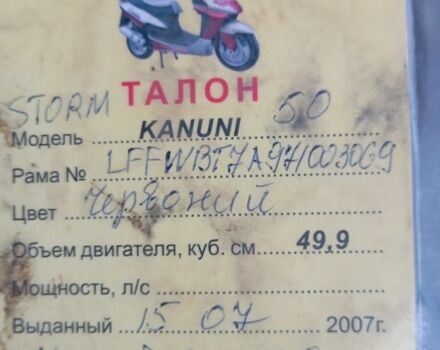 ТАЛОН
STORM 50
Модель KANUNI
Рама № LFFWBT7A971003069
Цвет Червоний
Объем двигателя, куб. см 49,9
Мощность, л/с
Выданный 15 07 2007г.